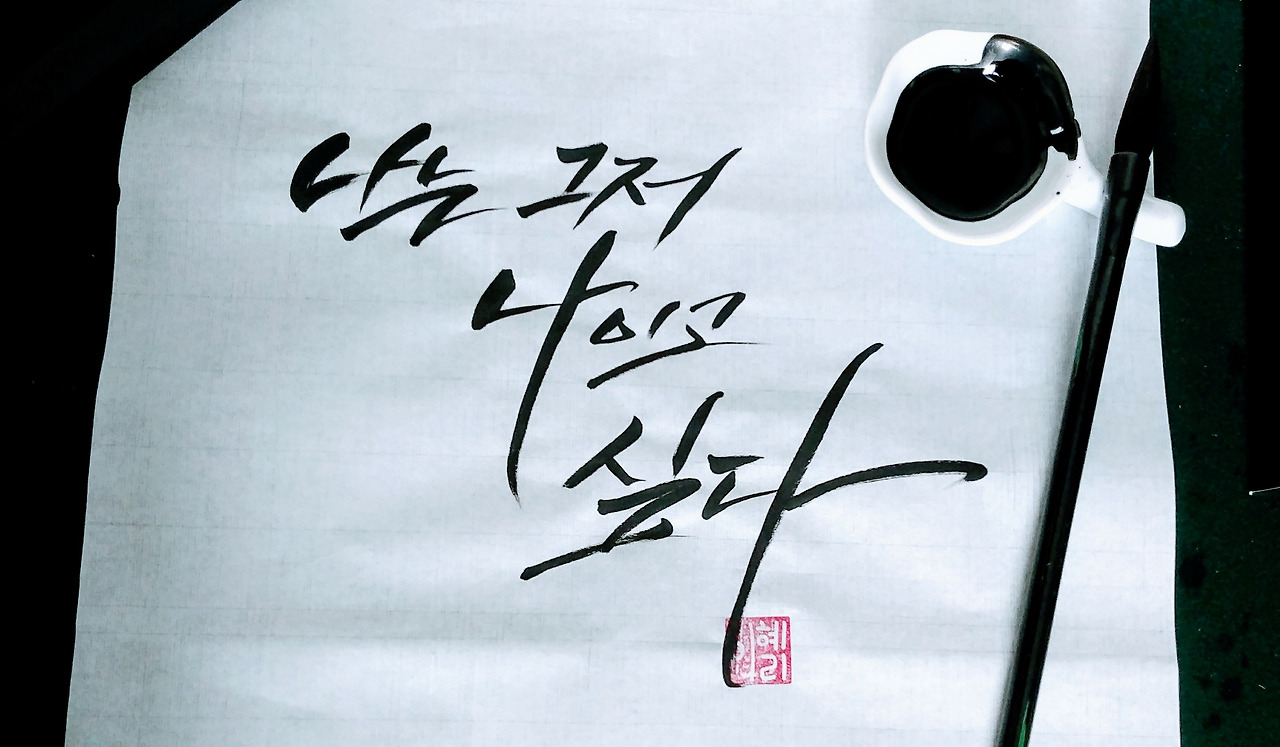 나는 그저
나이고
싶다
혜리